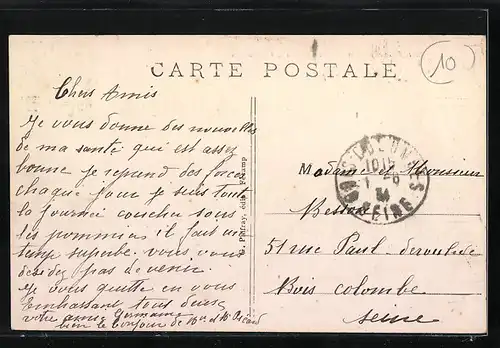 10
CARTE POSTALE
Chers Amis
Je vous donne des nouvelles
de ma santé qui est assez
bonne je reprend des forces
chaque jour je suis toute
la journée coucher sous
les pommiers il fait un
temps superbe. vous vous
décidez pas de venir.
Je vous quitte en vous
Embrassant tous deux
votre amie Germaine
bien le bonjour de Mr et Me
Fécamp
1015
SEINE
Madame et Monsieur
51 rue Paul deroulède
Bois colombe
Seine